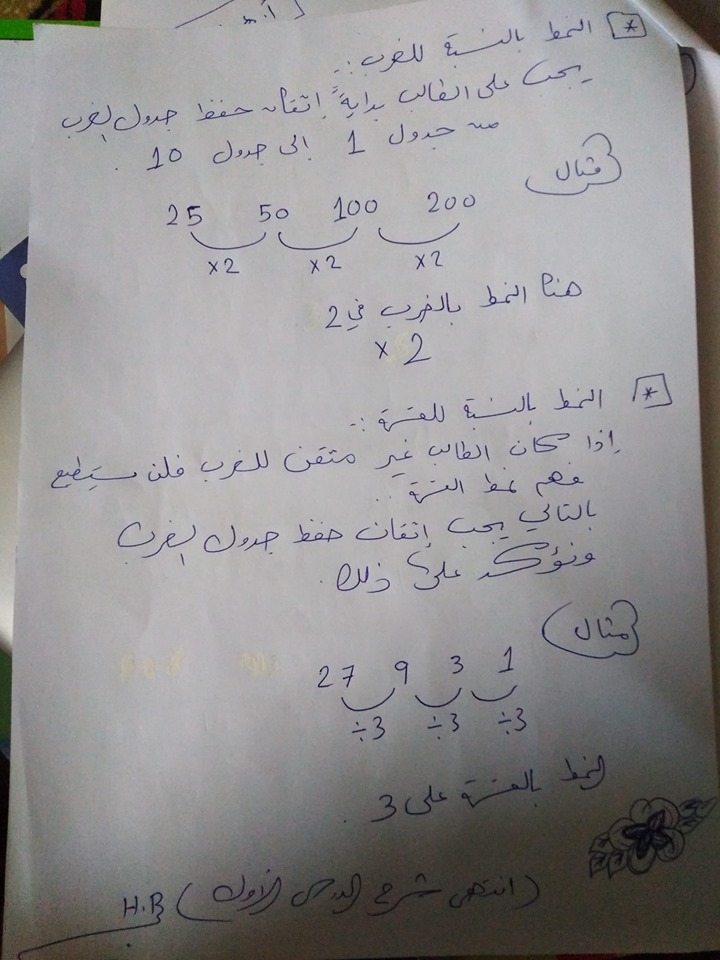 * النمط بالنسبة للضرب :-
يجب على الطالب بدايةً إتقان حفظ جدول الضرب
من جدول 1 الى جدول 10 .
مثال
25 50 100 200
×2 ×2 ×2
هنا النمط بالضرب في 2
× 2
* النمط بالنسبة للقسمة :-
إذا كان الطالب غير متقن للضرب فلن يستطيع
فهم نمط القسمة ..
بالتالي يجب إتقان حفظ جدول الضرب
ونؤكد على ذلك .
مثال
27 9 3 1
÷3 ÷3 ÷3
النمط بالقسمة على 3 .
(انتهى شرح الدرس الأول) H.B